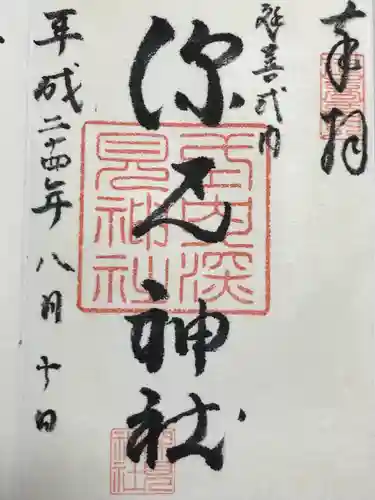 奉拝
延喜式内
深見神社
平成二十四年八月十日
式内深
見神社